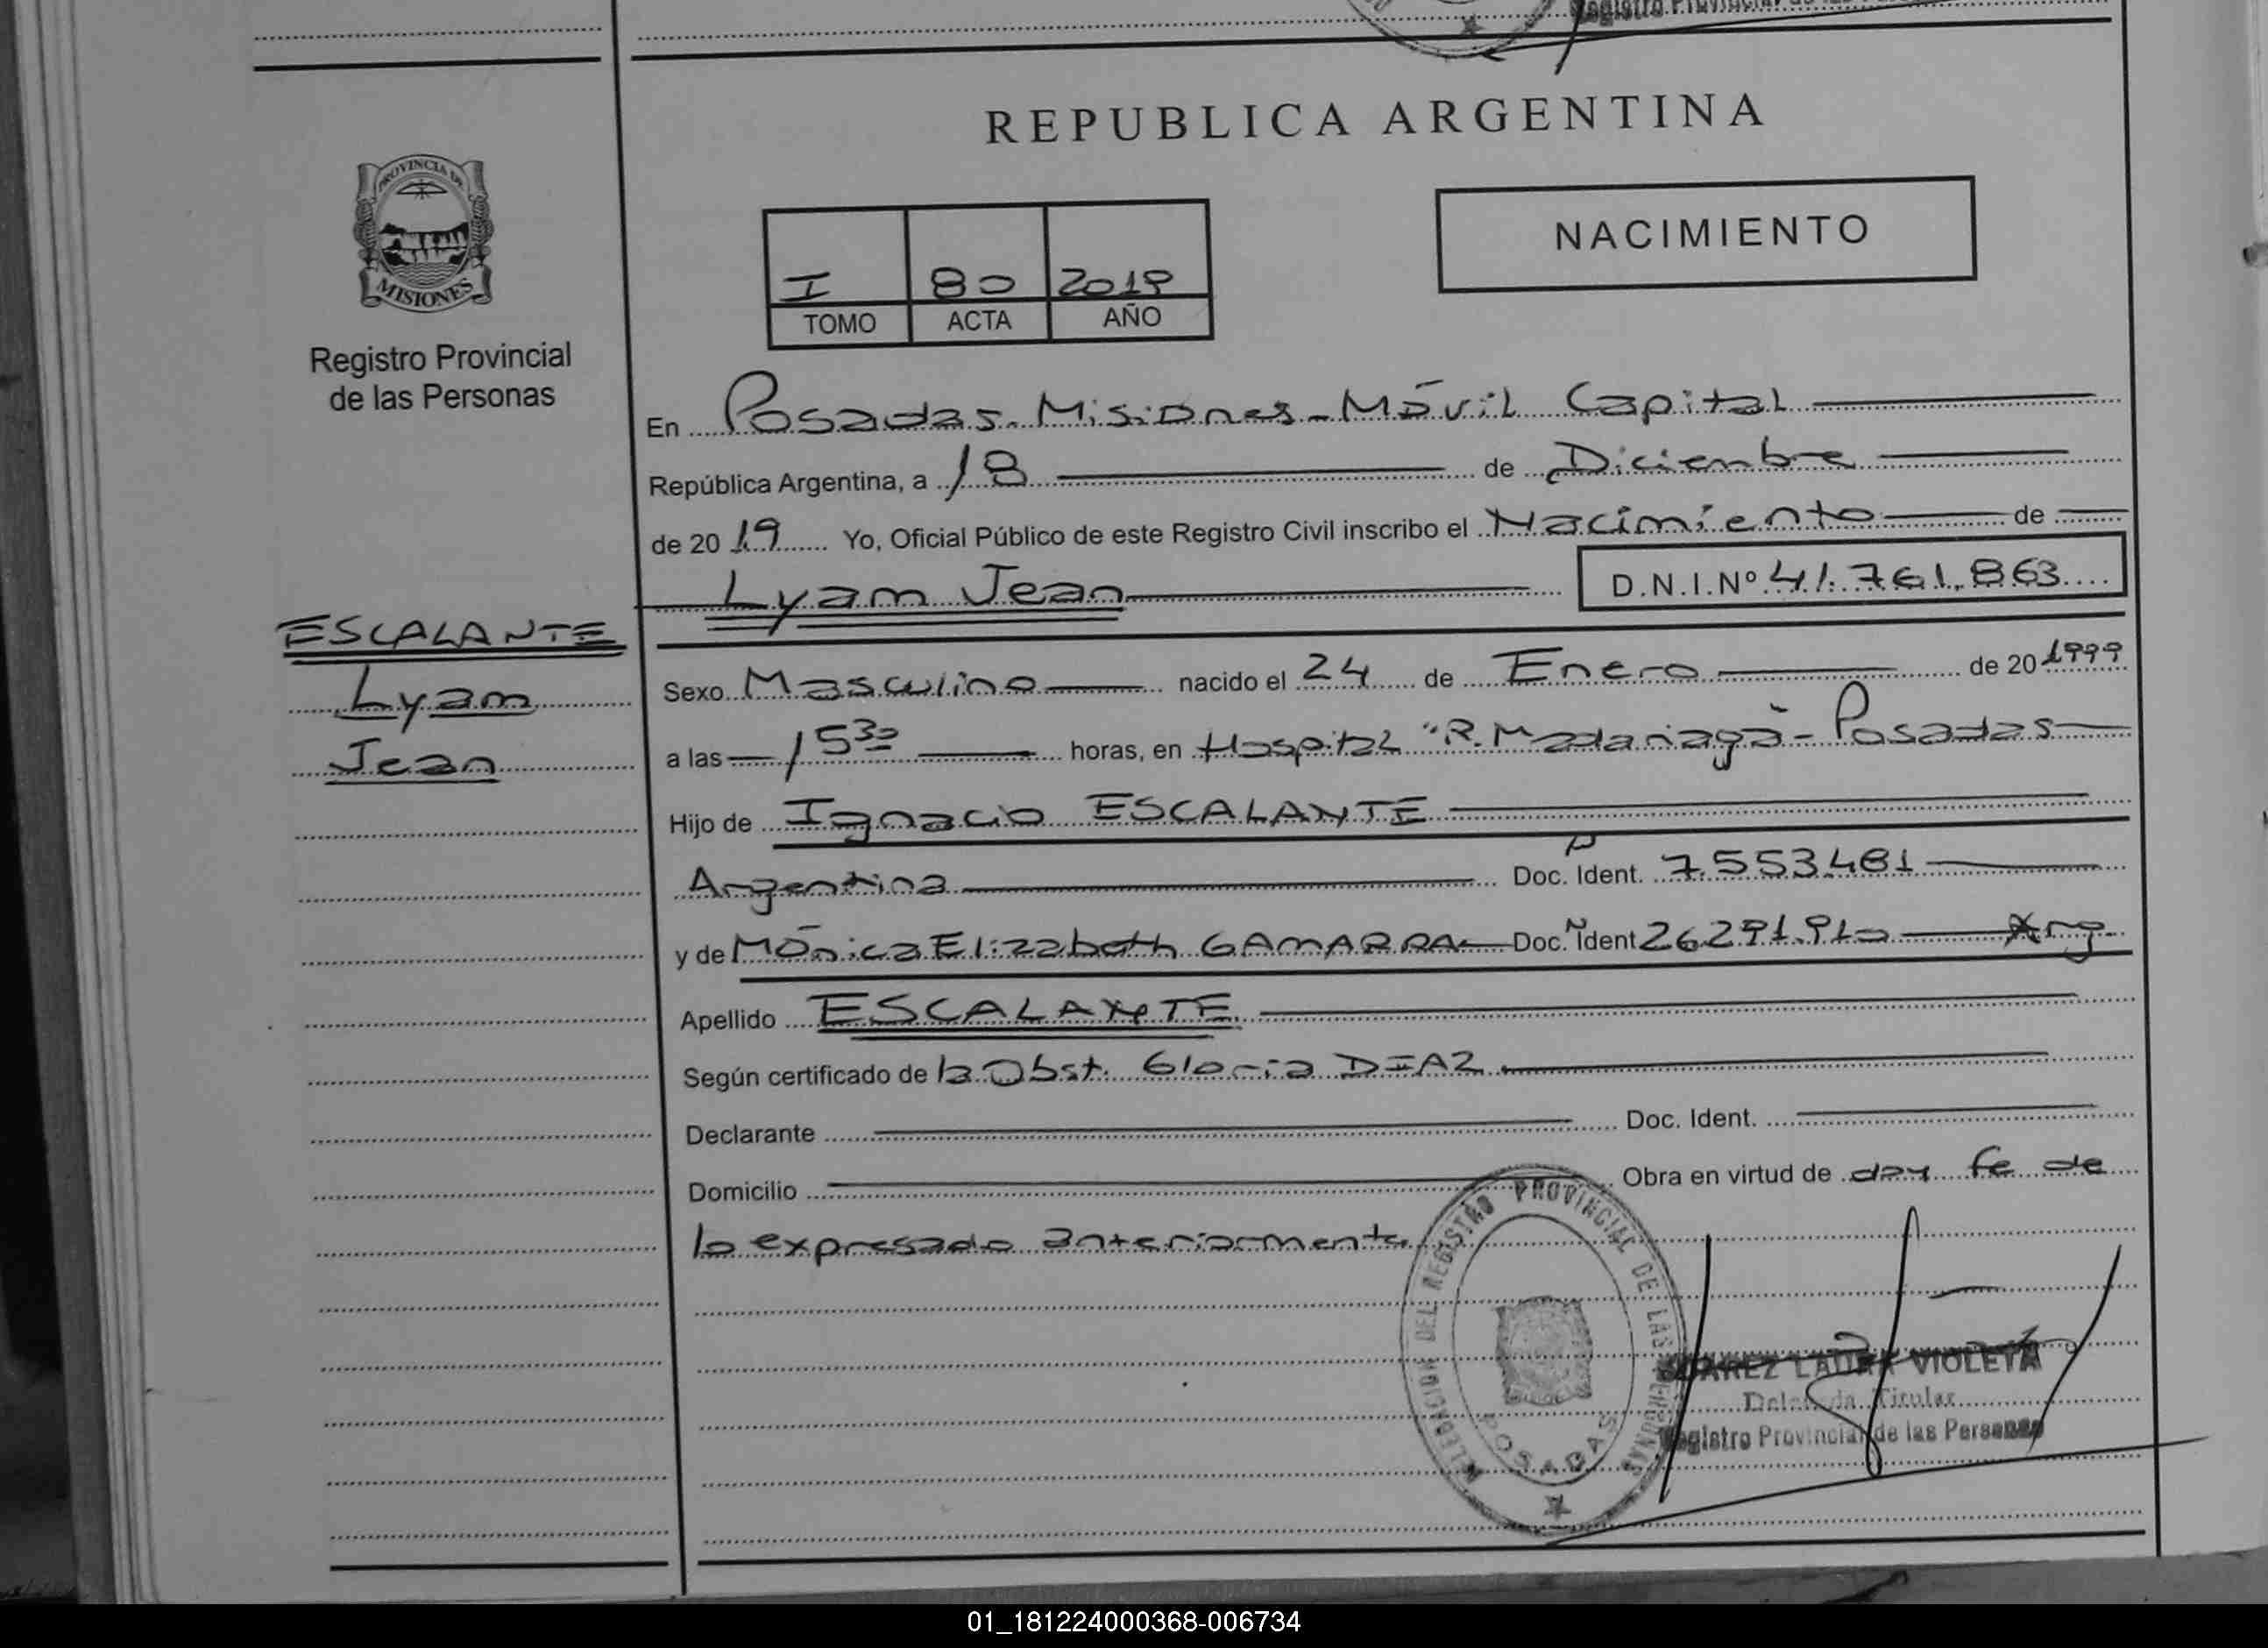 Registro Provincial de las
REPUBLICA ARGENTINA
PROVINCIA DE
MISIONES
Registro Provincial
de las Personas
NACIMIENTO
I 80 2019
TOMO ACTA AÑO
En Posadas - Misiones - Móvil Capital
República Argentina, a 18 de Diciembre
de 2019 Yo, Oficial Público de este Registro Civil inscribo el Nacimiento de
Lyam Jean D.N.I.Nº 41.761.863
ESCALANTE
Lyam
Jean
Sexo Masculino nacido el 24 de Enero de 20 1999
a las 15 30 horas, en Hospital "R. Madariaga" - Posadas
Hijo de Ignacio ESCALANTE
Argentina Doc. Ident. 7553481
y de Mónica Elizabeth GAMARRA Doc. Ident Arg.
Apellido ESCALANTE
Según certificado de la Obst. Gloria DIAZ
Declarante Doc. Ident.
Domicilio Obra en virtud de doy fe de
lo expresado anteriormente
DELEGACION DEL REGISTRO PROVINCIAL DE LAS PERSONAS
POSADAS
SUAREZ LAURA VIOLETA
Delegada Titular
Registro Provincial de las Personas
01_181224000368-006734